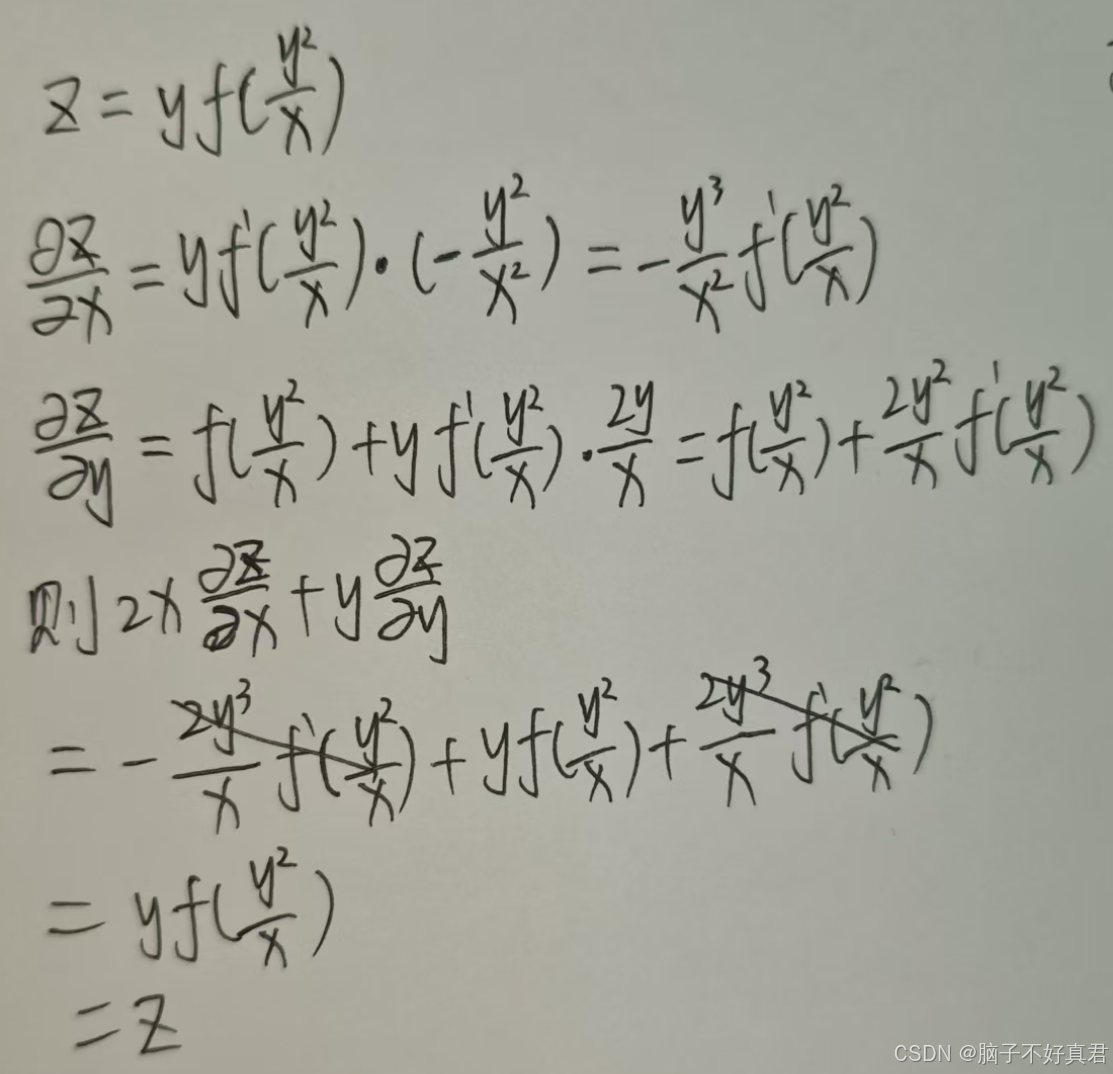 z = yf(y²/x)
∂z/∂x = yf'(y²/x)·(-y²/x²) = -y³/x² f'(y²/x)
∂z/∂y = f(y²/x) + yf'(y²/x)·2y/x = f(y²/x) + 2y²/x f'(y²/x)
则 2x ∂z/∂x + y ∂z/∂y
= -2y³/x f'(y²/x) + yf(y²/x) + 2y³/x f'(y²/x)
= yf(y²/x)
= z
CSDN @脑子不好真君